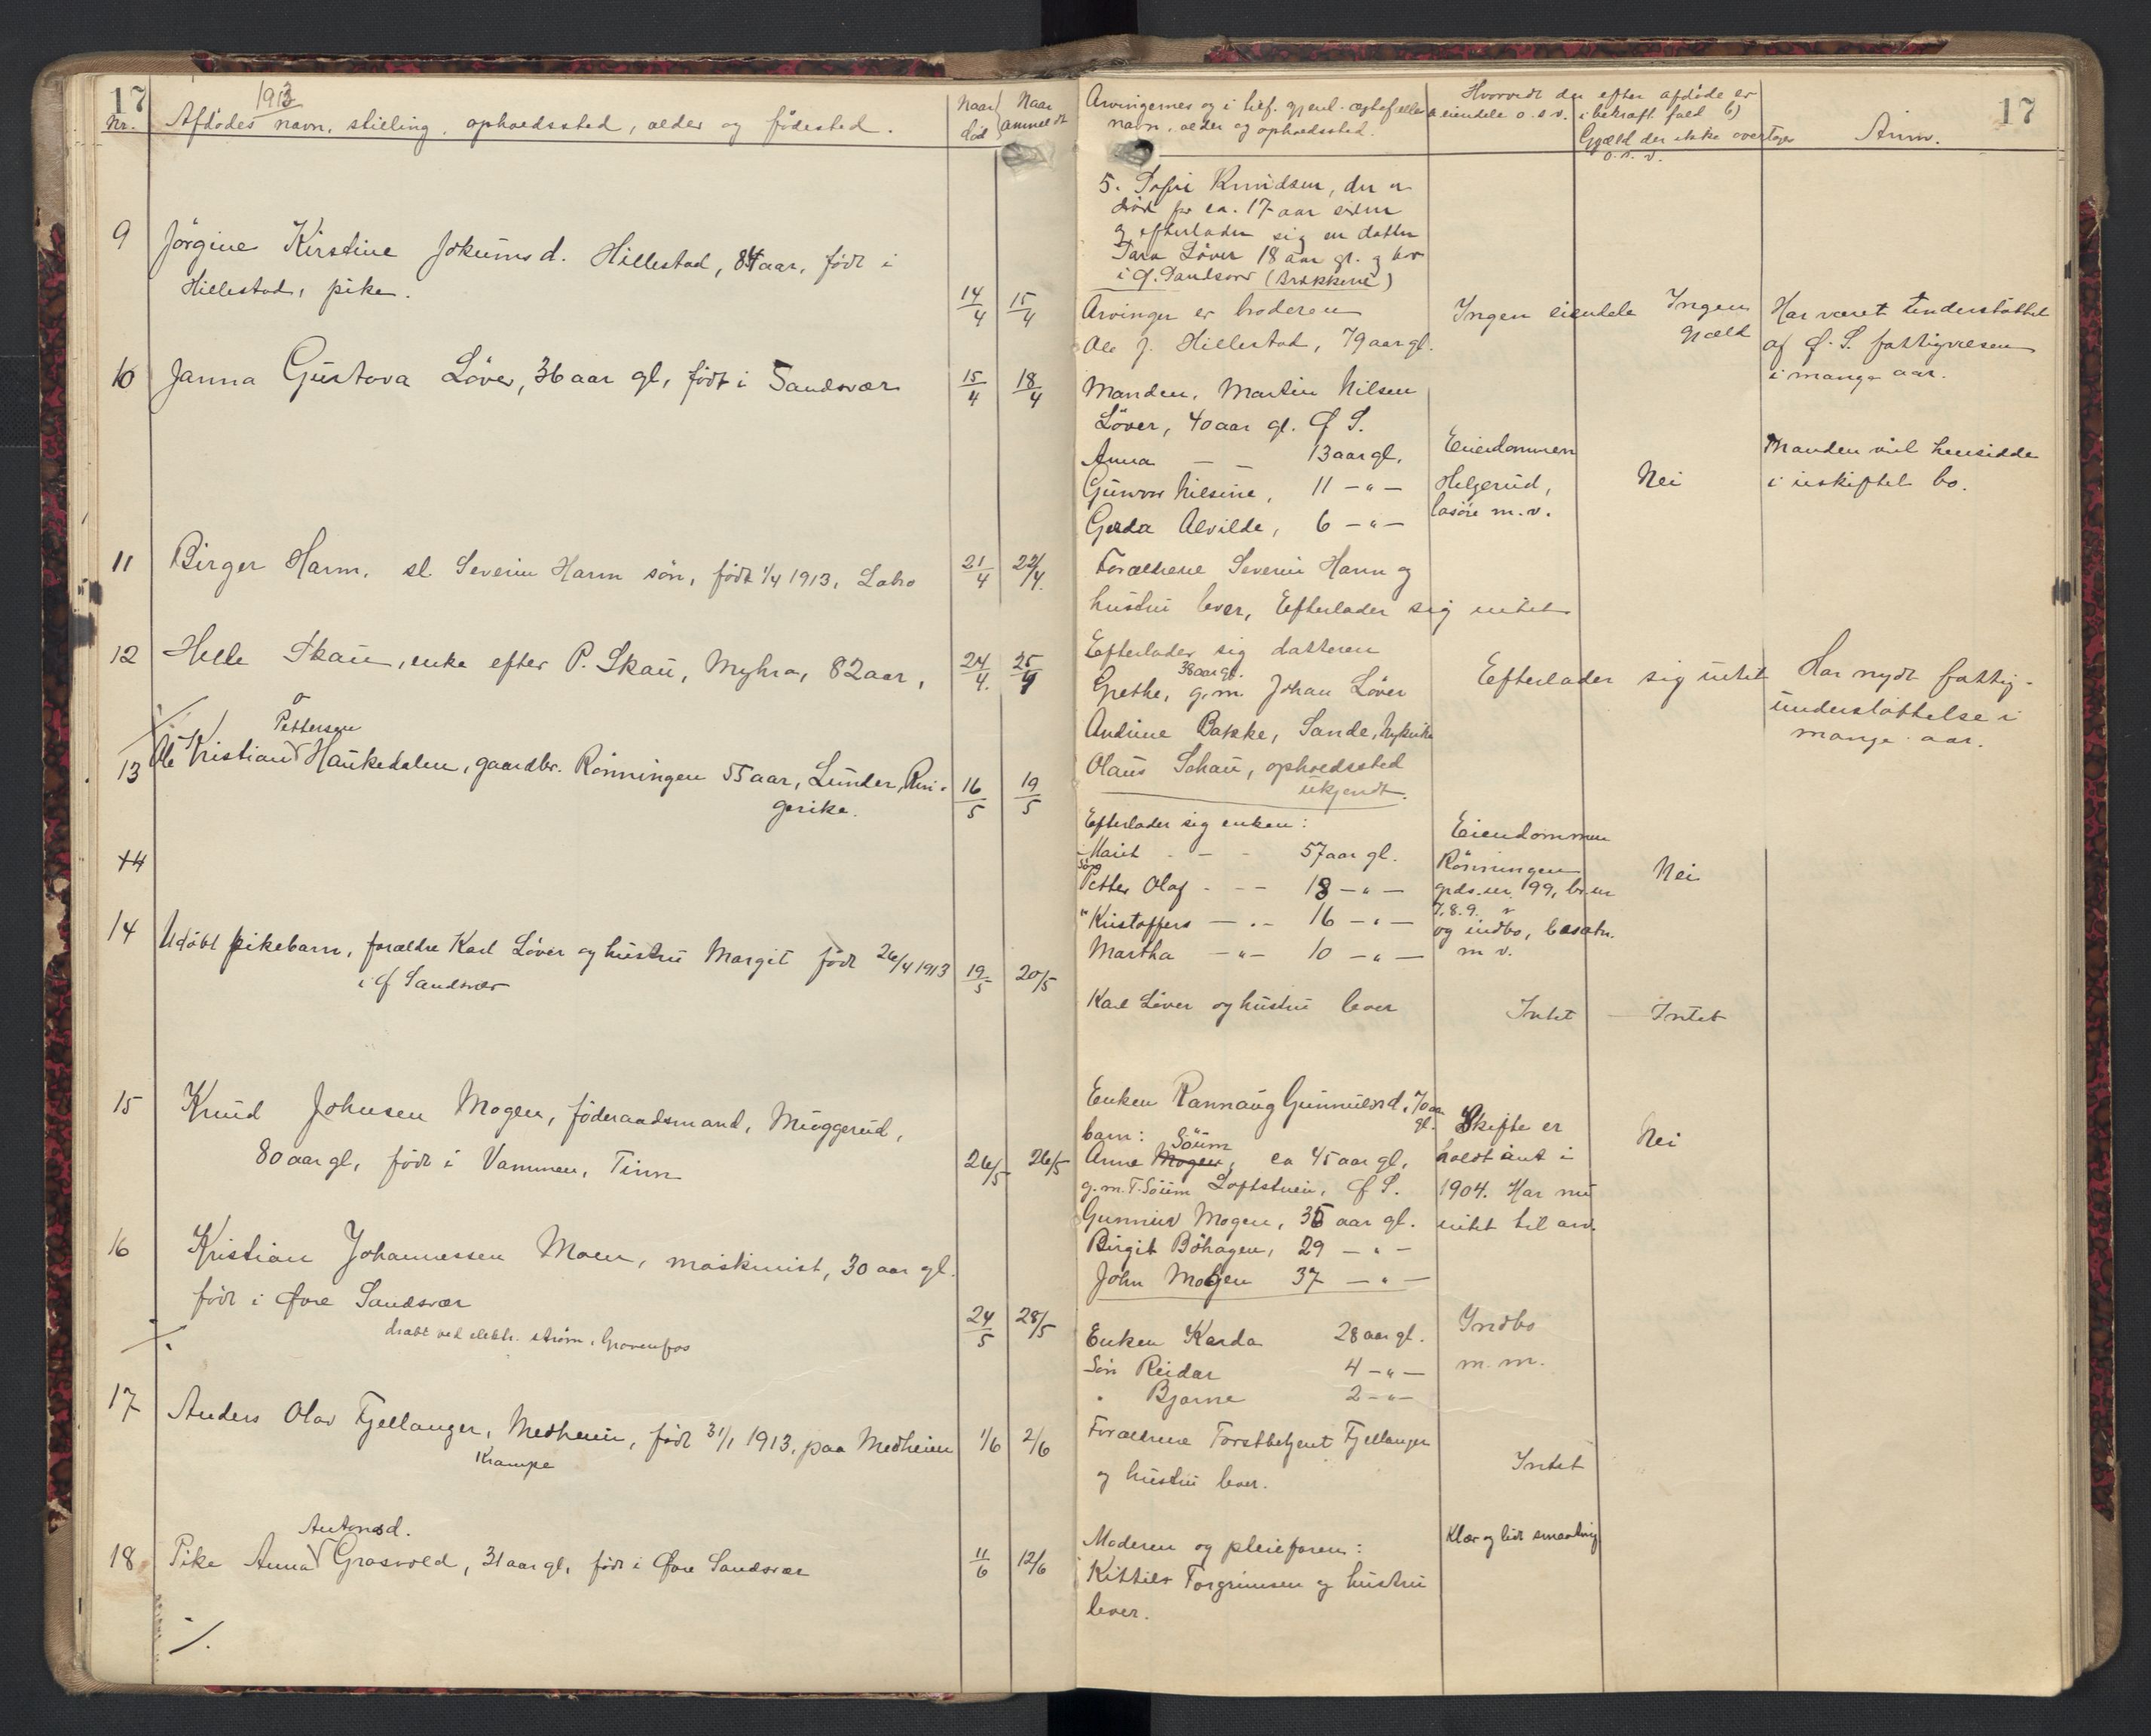 17
1913
Nr. Afdödes navn, stilling, opholdssted, alder og födested.
Naar död
Naar anmeldt
9 Jörgine Kirstine Jokumsd. Hillestad, 84 aar, född i
Hillestad, pike.
14/4 15/4
10 Janna Gustava Löver, 36 aar gl, född i Sandsvær
15/4 18/4
11 Birger Harm, sl. Severin Harm sön, född 1/4 1913, Labro
21/4 22/4.
12 Helle Skau, enke efter P. Skau, Myhra, 82 aar,
24/4. 25/4
Pettersen
13 Ole Kristian Haukedalen, gaardbr. Rönningen 55 aar, Lunder, Rin-
gerike.
16/5 19/5
14
14 Udöbt pikebarn, forældre Karl Löver og hustru Margit född 26/4 1913
i Ø Sandsvær
19/5 20/5
15 Knud Johnsen Mogen, föderaadsmand, Muggerud,
80 aar gl, född i Vammen, Tinn
26/5 26/5
16 Kristian Johannessen Moen, maskinist, 30 aar gl.
född i Øvre Sandsvær
dræbt ved elektr. ström, Gravenfos
24/5 28/5
17 Anders Olav Fjellanger, Medheim, född 31/1 1913, paa Medheim
Krampe
1/6 2/6
Antonsd.
18 Pike Anna Grosvold, 31 aar gl, född i Øvre Sandsvær
11/6 12/6
17
Arvingernes og i tilf. gjenl. ægtefælles
navn, alder og opholdssted.
Hvorvidt der efter afdöde er
a eiendele o.s.v. i bekræft. fald b)
Gjæld der ikke overtages
o.s.v.
Anm.
5. Sofie Knudsen, der er
död for ca. 17 aar siden
og efterlader sig en datter
Tara Löver 18 aar gl. og bor
i Ø. Sandsvær (Brækkerne)
Arvinger er broderen
Ole J. Hillestad, 79 aar gl.
Ingen eiendele
Ingen
gjæld
Har været understöttet
af Ø. S. fattigvæsen
i mange aar.
Manden, Martin Nilsen
Löver, 40 aar gl. Ø S.
Anna — — 13 aar gl.
Gunvor Nilsine, 11 — " —
Gerda Alvilde, 6 — " —
Eiendommen
Helgerud,
lösöre m.v.
Nei
Manden vil hensidde
i uskiftet bo.
Forældrene Severin Harm og
hustru lever, Efterlader sig intet.
Efterlader sig datteren
38 aar gl.
Grethe, g.m. Johan Löver
Andrine Bakke, Sande, Nykirke
Olaus Schau, opholdssted
ukjendt.
Efterlader sig intet
Har nydt fattig-
understöttelse i
mange aar.
Efterlader sig enken:
Marit - — - 57 aar gl.
Sön
Petter Olaf - — — 18 — " —
" Kristoffers — . — 16 — " —
Martha — " — 10 — " —
Eiendommen
Rönningen
grds. nr. 99, br. nr
7. 8. 9.
og indbo, besætn.
m v.
Nei
Karl Löver og hustru lever
Intet — Intet
Enken Rannaug Gunnulsd, 70 aar
gl.
barn: Söum
Anne Mogen, ca 45 aar gl,
g.m. T. Söum Loftstuen, Ø S.
Gunnuv Mogen, 35 aar gl.
Birgit Böhagen, 29 — " —
John Mogen 37 — " —
Skifte er
holdt aut i
1904. Har nu
intet til arv.
Nei
Enken Karda 28 aar gl.
Sön Reidar 4 — " —
" Bjarne 2 — " —
Indbo
m. m.
Forældrene Forstbetjent Fjellanger
og hustru lever.
Intet
Moderen og pleiefaren:
Kittilv Torgrimsen og hustru
lever.
Klær og lidt smaating